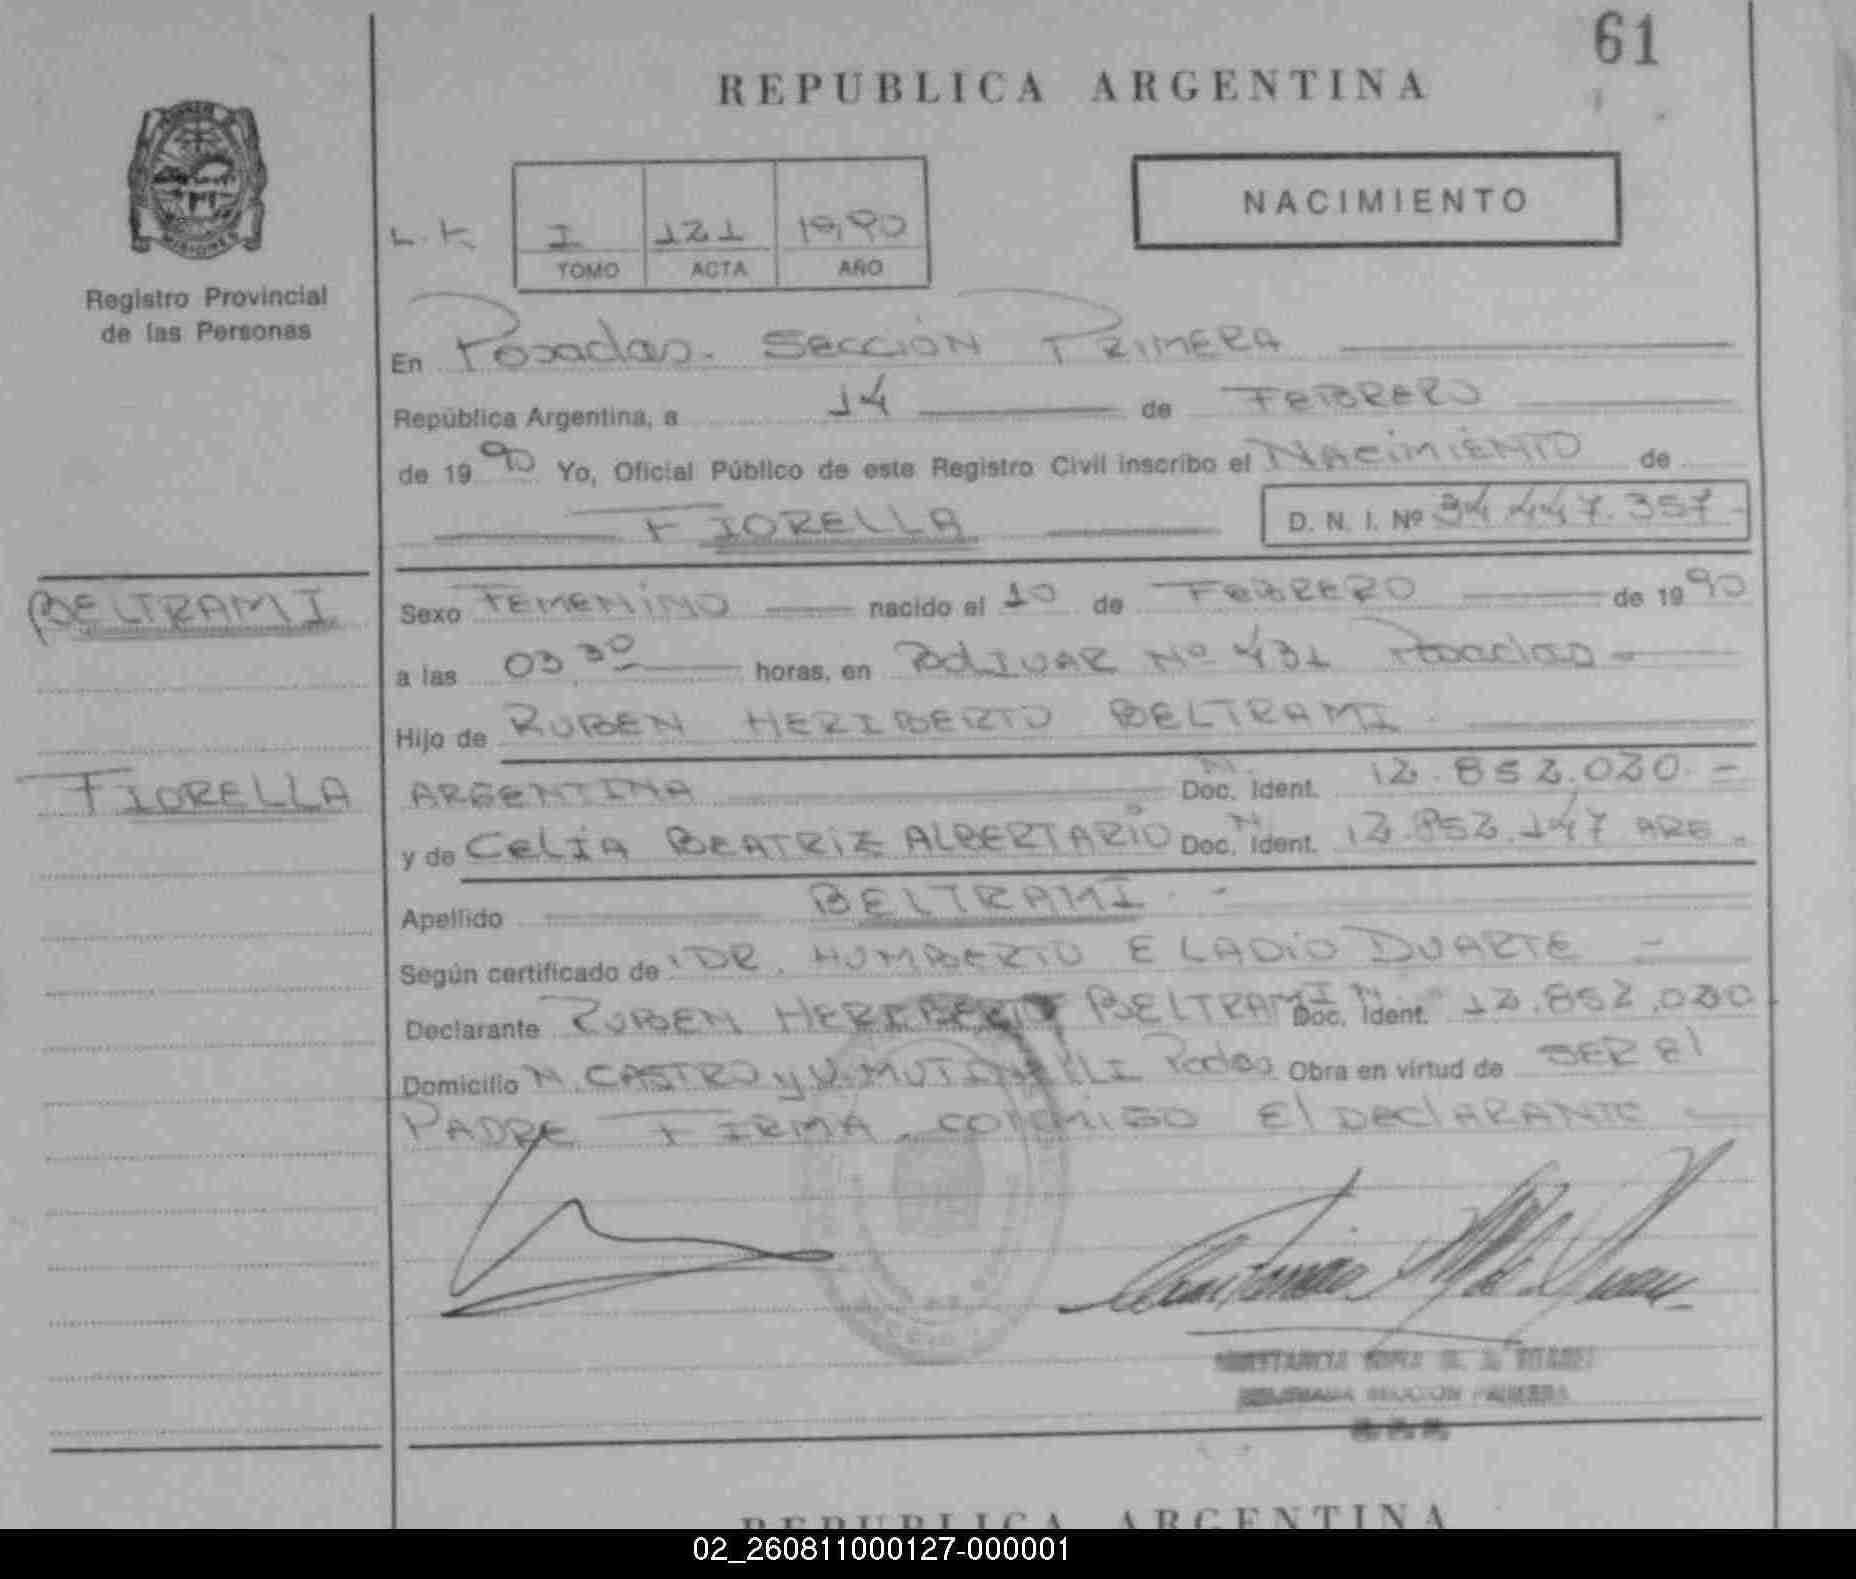 61
REPUBLICA ARGENTINA
NACIMIENTO
I 121 1990
TOMO ACTA AÑO
Registro Provincial
de las Personas
En Posadas. SECCIÓN PRIMERA
República Argentina, a 14 de FEBRERO
de 1990 Yo, Oficial Público de este Registro Civil inscribo el NACIMIENTO de
FIORELLA D. N. I. Nº 34.447.357
BELTRAMI
Sexo FEMENINO nacido el 10 de FEBRERO de 1990
a las 03,30 horas, en BOLIVAR Nº 431 Posadas
Hijo de RUBEN HERIBERTO BELTRAMI
FIORELLA
ARGENTINA Doc. Ident. 12.852.020.-
y de CELIA BEATRIZ ALBERTARIO Doc. Ident. 12.852.147 ARG.
Apellido BELTRAMI.-
Según certificado de DR. HUMBERTO ELADIO DUARTE
Declarante RUBEN HERIBERTO BELTRAMI Doc. Ident. 12.852.020
Domicilio N. CASTRO y Pdas Obra en virtud de SER El
PADRE FIRMA CONMIGO El DECLARANTE
SECCION PRIMERA
REPUBLICA ARGENTINA
02_260811000127-000001